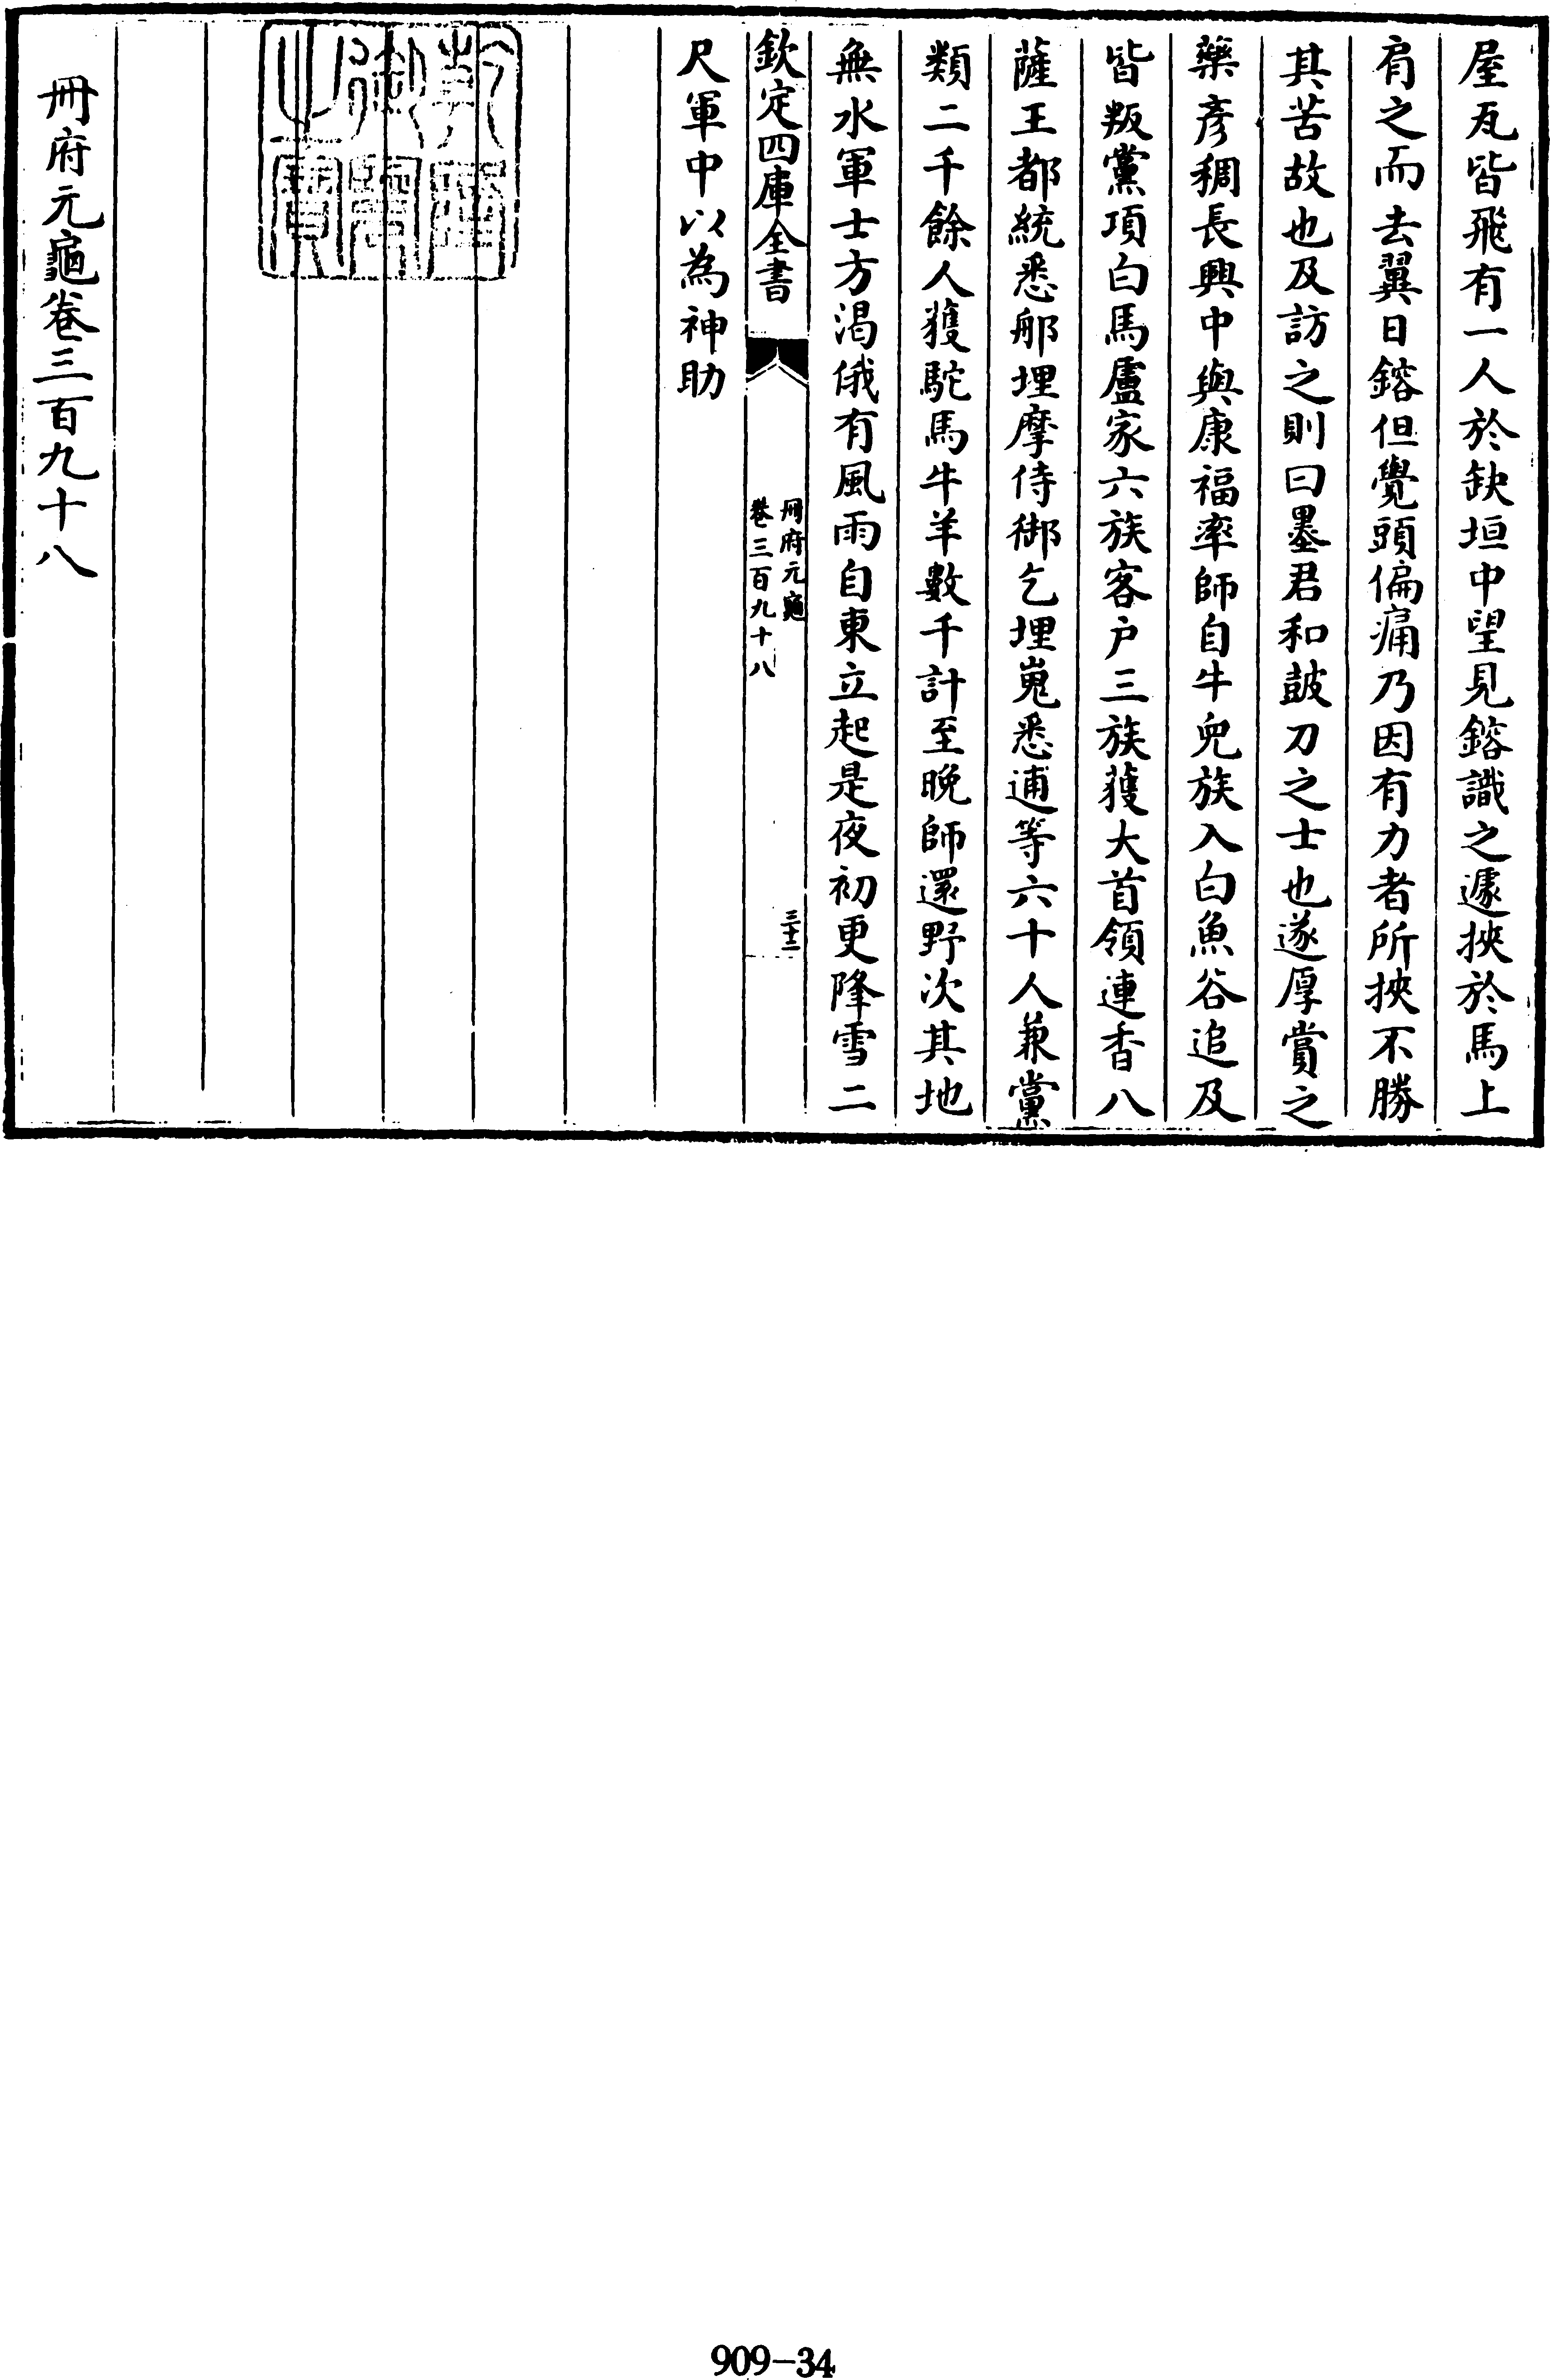 屋瓦皆飛有一人於缺垣中望見鎔識之遽挾於馬上
肩之而去翼日鎔但覺頭偏痛乃因有力者所挾不勝
其苦故也及訪之則曰墨君和鼓刀之士也遂厚賞之
藥彥稠長興中與康福率師自牛兒族入白魚谷追及
皆叛黨項白馬盧家六族客户三族獲大首領連香八
薩王都統悉郍埋摩侍御乞埋嵬悉逋等六十人兼黨
類二千餘人獲駝馬牛羊數千計至晚師還野次其地
無水軍士方渴俄有風雨自東立起是夜初更降雪二
欽定四庫全書
冊府元龜
卷三百九十八
三十二
尺軍中以為神助
乾隆御覽之寶
冊府元龜卷三百九十八
909-34